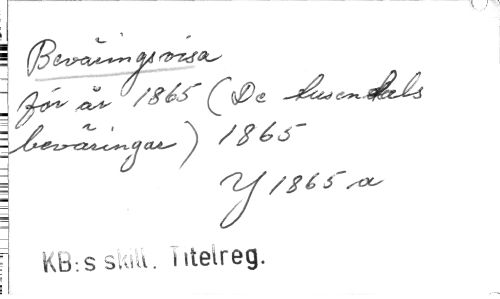 Beväringsvisa
för år 1865 (De tusentals
beväringar) 1865
Y 1865 a
KB:s skill. Titelreg.